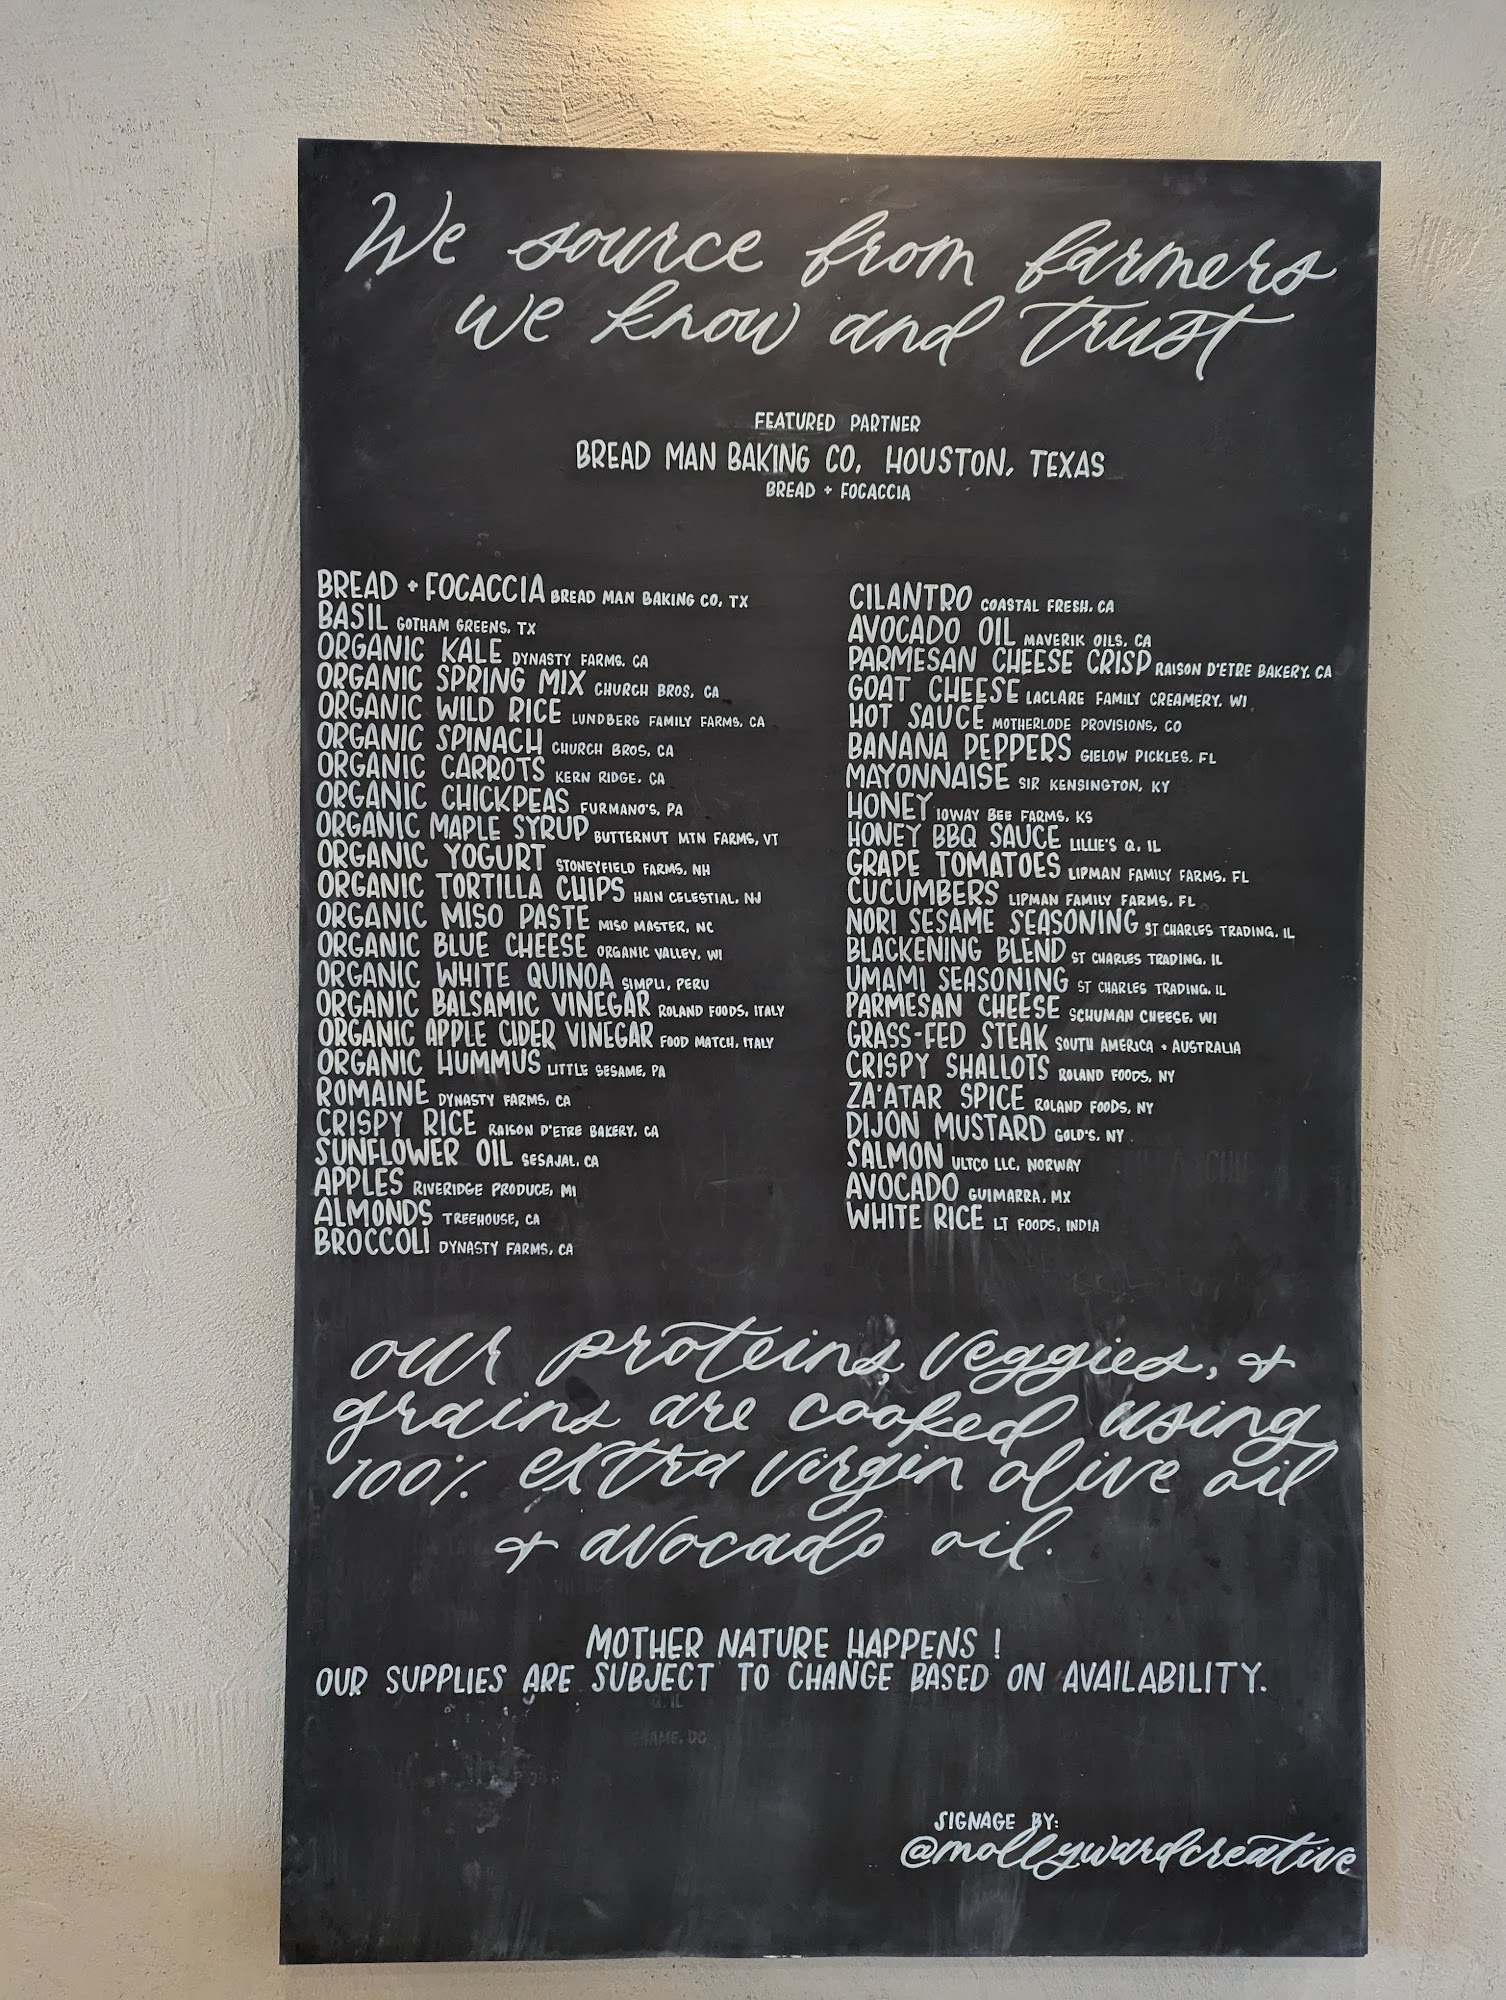 We source from farmers
we know and trust
FEATURED PARTNER
BREAD MAN BAKING CO, HOUSTON, TEXAS
BREAD + FOCACCIA
BREAD + FOCACCIA BREAD MAN BAKING CO, TX
BASIL GOTHAM GREENS, TX
ORGANIC KALE DYNASTY FARMS, CA
ORGANIC SPRING MIX CHURCH BROS, CA
ORGANIC WILD RICE LUNDBERG FAMILY FARMS, CA
ORGANIC SPINACH CHURCH BROS, CA
ORGANIC CARROTS KERN RIDGE, CA
ORGANIC CHICKPEAS FURMANO'S, PA
ORGANIC MAPLE SYRUP BUTTERNUT MTN FARMS, VT
ORGANIC YOGURT STONEYFIELD FARMS, NH
ORGANIC TORTILLA CHIPS HAIN CELESTIAL, NJ
ORGANIC MISO PASTE MISO MASTER, NC
ORGANIC BLUE CHEESE ORGANIC VALLEY, WI
ORGANIC WHITE QUINOA SIMPLI, PERU
ORGANIC BALSAMIC VINEGAR ROLAND FOODS, ITALY
ORGANIC APPLE CIDER VINEGAR FOOD MATCH, ITALY
ORGANIC HUMMUS LITTLE SESAME, PA
ROMAINE DYNASTY FARMS, CA
CRISPY RICE RAISON D'ETRE BAKERY, CA
SUNFLOWER OIL SESAJAL, CA
APPLES RIVERIDGE PRODUCE, MI
ALMONDS TREEHOUSE, CA
BROCCOLI DYNASTY FARMS, CA
CILANTRO COASTAL FRESH, CA
AVOCADO OIL MAVERIK OILS, CA
PARMESAN CHEESE CRISP RAISON D'ETRE BAKERY, CA
GOAT CHEESE LACLARE FAMILY CREAMERY, WI
HOT SAUCE MOTHERLODE PROVISIONS, CO
BANANA PEPPERS GIELOW PICKLES, FL
MAYONNAISE SIR KENSINGTON, KY
HONEY IOWAY BEE FARMS, KS
HONEY BBQ SAUCE LILLIE'S Q, IL
GRAPE TOMATOES LIPMAN FAMILY FARMS, FL
CUCUMBERS LIPMAN FAMILY FARMS, FL
NORI SESAME SEASONING ST CHARLES TRADING, IL
BLACKENING BLEND ST CHARLES TRADING, IL
UMAMI SEASONING ST CHARLES TRADING, IL
PARMESAN CHEESE SCHUMAN CHEESE, WI
GRASS-FED STEAK SOUTH AMERICA + AUSTRALIA
CRISPY SHALLOTS ROLAND FOODS, NY
ZA'ATAR SPICE ROLAND FOODS, NY
DIJON MUSTARD GOLD'S, NY
SALMON ULTCO LLC, NORWAY
AVOCADO GUIMARRA, MX
WHITE RICE LT FOODS, INDIA
our proteins, veggies, +
grains are cooked using
100% extra virgin olive oil
+ avocado oil.
MOTHER NATURE HAPPENS !
OUR SUPPLIES ARE SUBJECT TO CHANGE BASED ON AVAILABILITY.
SIGNAGE BY:
@mollywardcreative